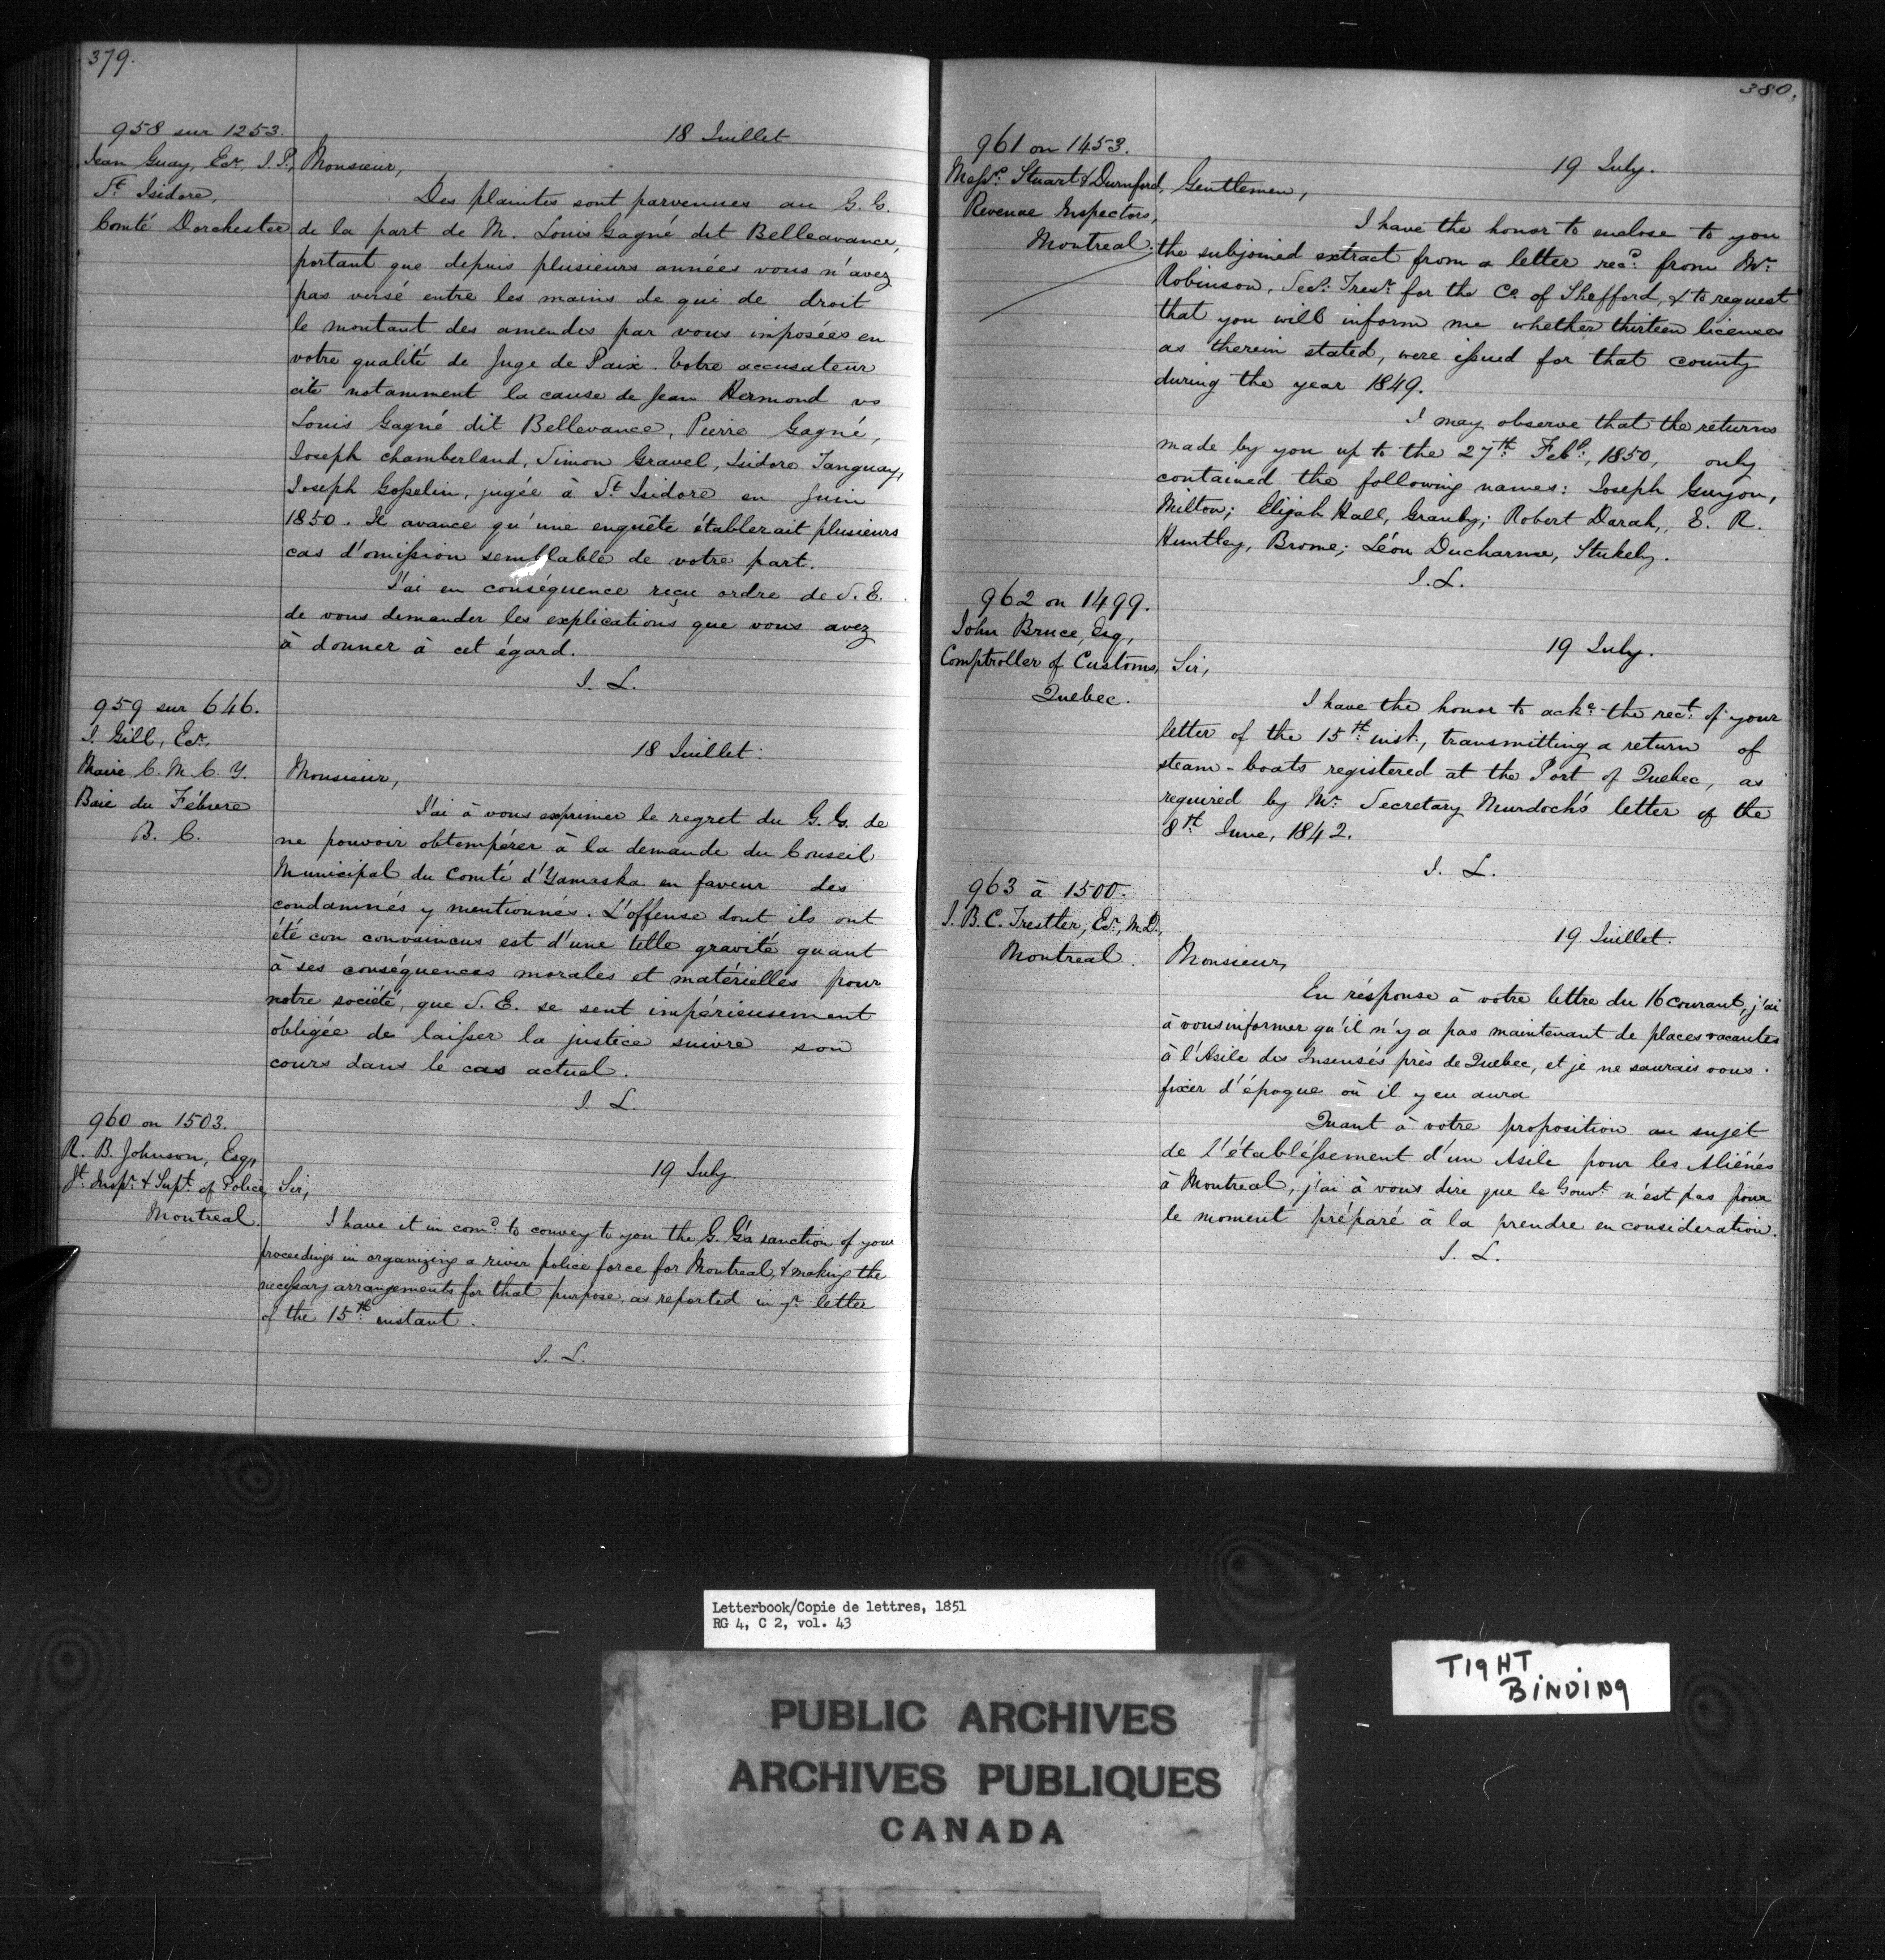 379.
958 sur 1253.
Jean Guay, Ecr, J.P.,
St Isidore,
Comté Dorchester
18 Juillet
Monsieur,
Des plaintes sont parvenues au G. G.
de la part de M. Louis Gagné dit Belleavance,
portant que depuis plusieurs années vous n'avez
pas versé entre les mains de qui de droit
le montant des amendes par vous imposées en
votre qualité de Juge de Paix. Votre accusateur
cite notamment la cause de Jean Hermond vs
Louis Gagné dit Bellevance, Pierre Gagné,
Joseph Chamberland, Simon Gravel, Isidore Tanguay,
Joseph Gosselin, jugée à St Isidore en Juin
1850. Il avance qu'une enquête établerait plusieurs
cas d'omission semblable de votre part.
J'ai en conséquence reçu ordre de S. E.
de vous demander les explications que vous avez
à donner à cet égard.
J. L.
959 sur 646.
J. Gill, Ecr.
Maire C. M. C. Y.
Baie du Fébvre
B. C.
18 Juillet.
Monsieur,
J'ai à vous exprimer le regret du G. G. de
ne pouvoir obtempérer à la demande du Conseil
Municipal du Comté d'Yamaska en faveur des
condamnés y mentionnés. L'offense dont ils ont
été con convaincus est d'une telle gravité quant
à ses conséquences morales et matérielles pour
notre société, que S. E. se sent impérieusement
obligée de laisser la justice suivre son
cours dans le cas actuel.
J. L.
960 on 1503.
R. B. Johnson, Esq,
Jt Inspr & Supt of Police,
Montreal.
19 July.
Sir,
I have it in comd to convey to you the G. G's sanction of your
proceedings in organizing a river police force for Montreal, & making the
necessary arrangements for that purpose, as reported in yr letter
of the 15th instant.
J. L.
380.
961 on 1453.
Messrs Stuart & Durnford,
Revenue Inspectors,
Montreal.
19 July.
Gentlemen,
I have the honor to enclose to you
the subjoined extract from a letter recd from Mr
Robinson, Secy Tresr for the Co of Shefford, & to request
that you will inform me whether thirteen licenses
as therein stated, were issued for that county
during the year 1849.
I may observe that the returns
made by you up to the 27th Feby, 1850, only
contained the following names: Joseph Guyon,
Milton; Elijah Hall, Granby; Robert Darah, E. R.
Huntley, Brome; Léon Ducharme, Stukely.
J. L.
962 on 1499.
John Bruce, Esq,
Comptroller of Customs,
Quebec.
19 July.
Sir,
I have the honor to acke the rect of your
letter of the 15th inst., transmitting a return of
steam-boats registered at the Port of Quebec, as
required by Mr Secretary Murdoch's letter of the
8th June, 1842.
J. L.
963 à 1500.
J. B. C. Trestler, Ecr, M.D.,
Montreal.
19 Juillet.
Monsieur,
En résponse à votre lettre du 16 courant, j'ai
à vous informer qu'il n'y a pas maintenant de places vacantes
à l'Asile des Insensés près de Quebec, et je ne saurais vous
fixer d'époque où il y en aura
Quant à votre proposition au sujet
de l'établissement d'un Asile pour les Aliénés
à Montreal, j'ai à vous dire que le Gouvt n'est pas pour
le moment préparé à la prendre en consideration.
J. L.
Letterbook/Copie de lettres, 1851
RG 4, C 2, vol. 43
TIGHT
BINDING
PUBLIC ARCHIVES
ARCHIVES PUBLIQUES
CANADA